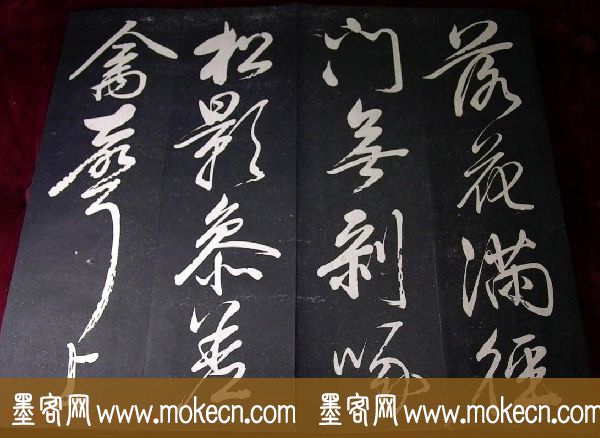 落花滿徑
門無剝啄
松影參差
禽聲上
墨客网 www.mokecn.com 墨客网 www.mokecn.com